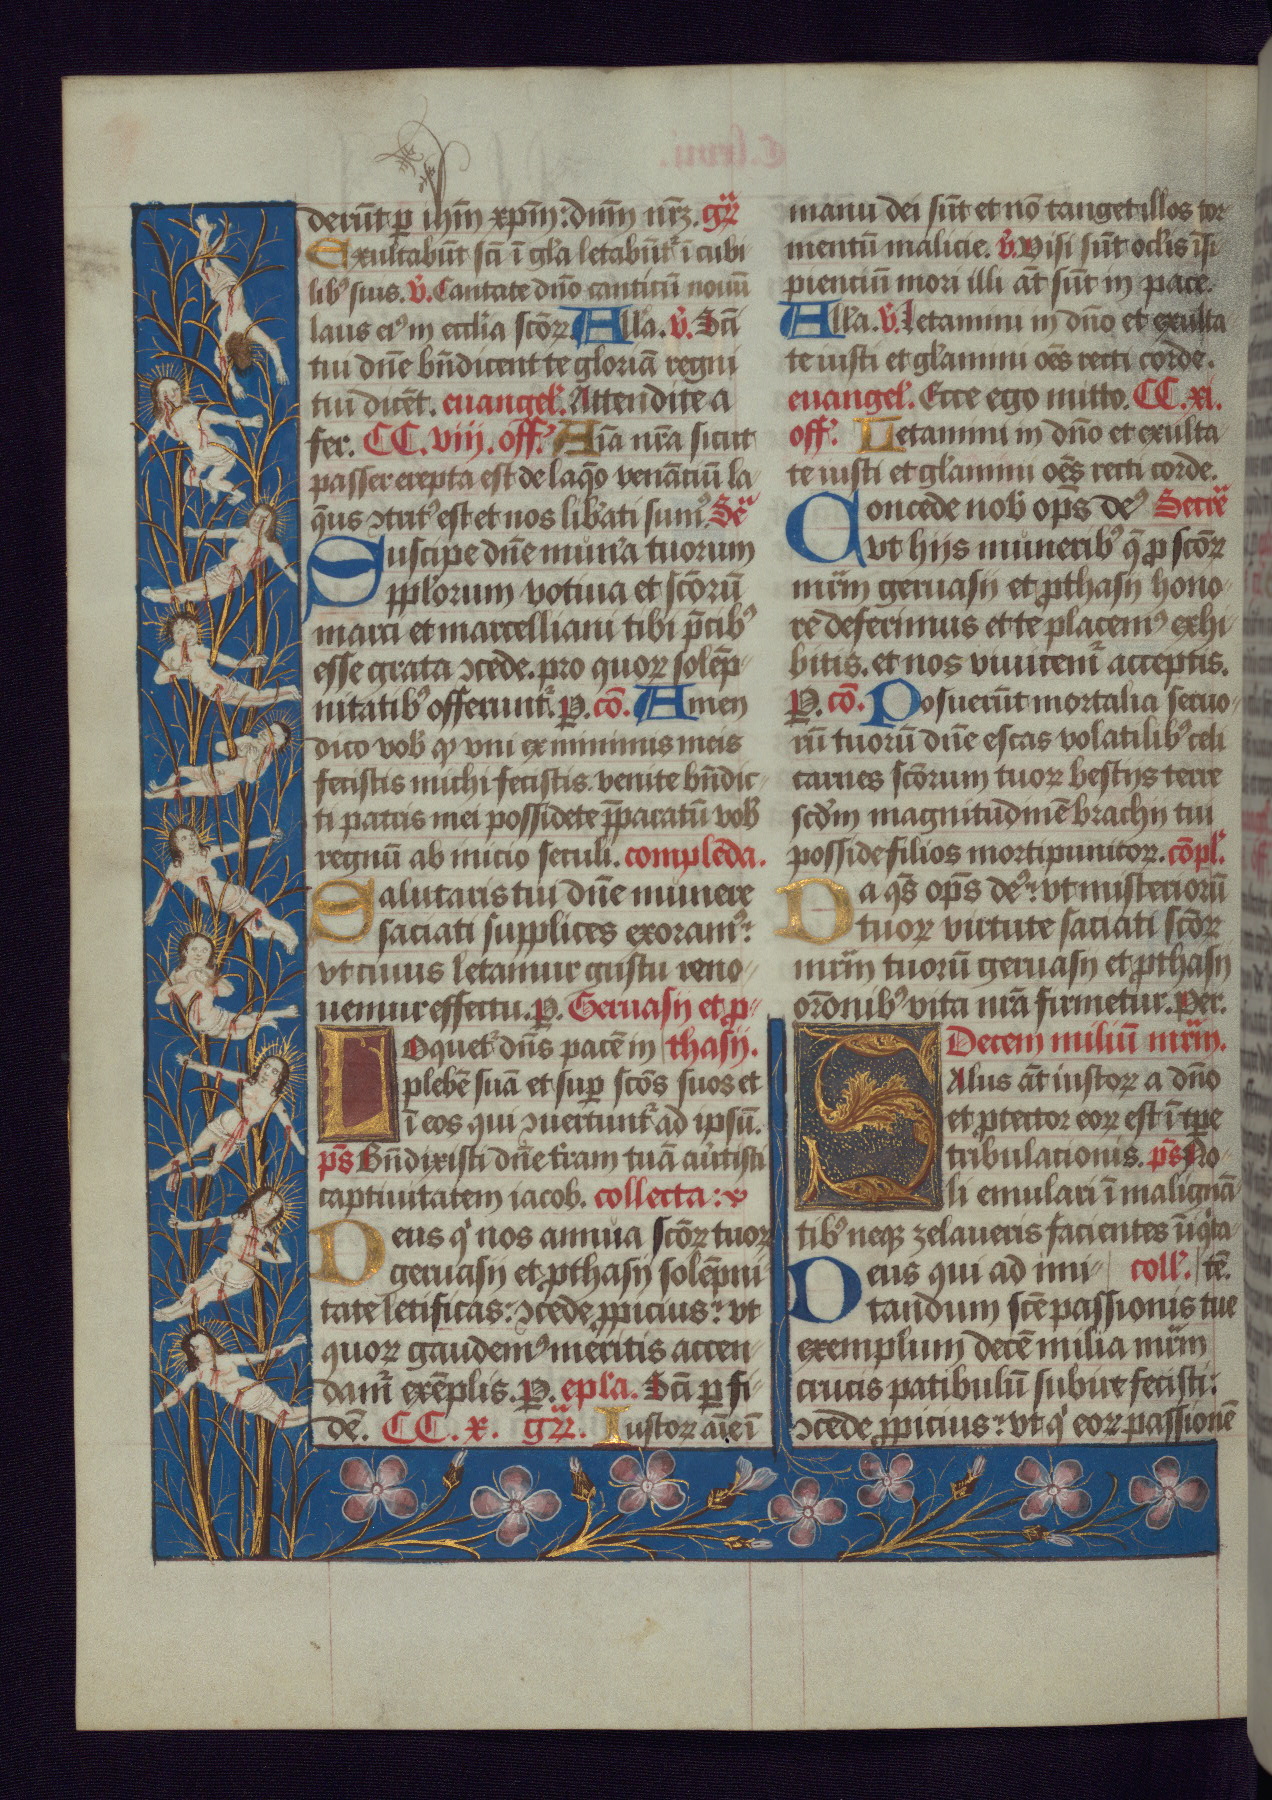 derūt p ihm xpm: dnm nrz. gr
Exultabūt sci ī gla letabūtr ī cubi
lib9 suis. v. Cantate dno canticū nouū
laus ei9 in ecclia scor. Alla. v. Sci
tui dne bndicent te gloriā regni
tui dicēt. euangel. Attendite a
fer. CC. viij. off. Aia nra sicut
passer erepta est de laqo venātiū la-
q̄us ɔtrit9 est et nos librati sum9. Se
Suscipe dne mūn'a tuorum
pplorum votiua et scorū
marci et marcelliani tibi pcib9
esse grata ɔcede. pro quor solēp-
nitatib9 offeruntr. P. cō. Amen
dico vob qp vni ex minimis meis
fecistis michi fecistis. venite bndic-
ti patris mei possidete pparatū vob
regnū ab inicio seculi. complēda.
Salutaris tui dne munere
saciati supplices exoram9:
vt cuius letamur gustu reno-
uemur effectu. P. Geruasij et p-
Loquetr dns pacē in thasij.
plebē suā et sup scos suos et
ī eos qui ɔuertuntr ad ipsū.
ps Bndixisti dne t'ram tuā au'tisti
captiuitatem iacob. collecta: v
Deus q nos annua scor tuor
geruasij et pthasij solēpni-
tate letificas: ɔcede ppicius: vt
quor gaudem9 meritis accen-
damr exēplis. P. epla. Sci p fi-
dē. CC. x. gr. Iustor aie ī
manu dei sūt et nō tanget illos tor
mentū malicie. v. Visi sūt oclis īsi
pienciū mori illi āt sūt in pace.
Alla. v. Letamini in dno et exulta
te iusti et glamini oēs recti corde.
euangel. Ecce ego mitto. CC. xi.
off. Letamini in dno et exulta
te iusti et glamini oēs recti corde.
Concede nob ops de9 Secre
vt hijs munerib9 q̄ p scor
mrm geruasij et pthasij hono-
rē deferimus et te placem9 exhi-
bitis. et nos viuicemr acceptis.
P. cō. Posuerūt mortalia seruo-
rū tuorū dne escas volatilib9 celi
carnes scorum tuor bestijs terre
scdm magnitudinē brachij tui
posside filios mortipunitor. cōpl.
Da qs ops de9: vt misteriorū
tuor virtute saciati scor
mrm tuorū geruasij et pthasij
oronib9 vita nra firmetur. Per.
Decem miliū mrm.
Salus āt iustor a dno
et ptector eor est ī tpe
tribulacionis. ps No-
li emulari ī malignā-
tib9 neqz zelaueris facientes īiq'ta-
Deus qui ad imi- coll. tē.
tandum scē passionis tue
exemplum decē milia mrm
crucis patibulū subire fecisti:
ɔcede ppicius: vt q eor passionē